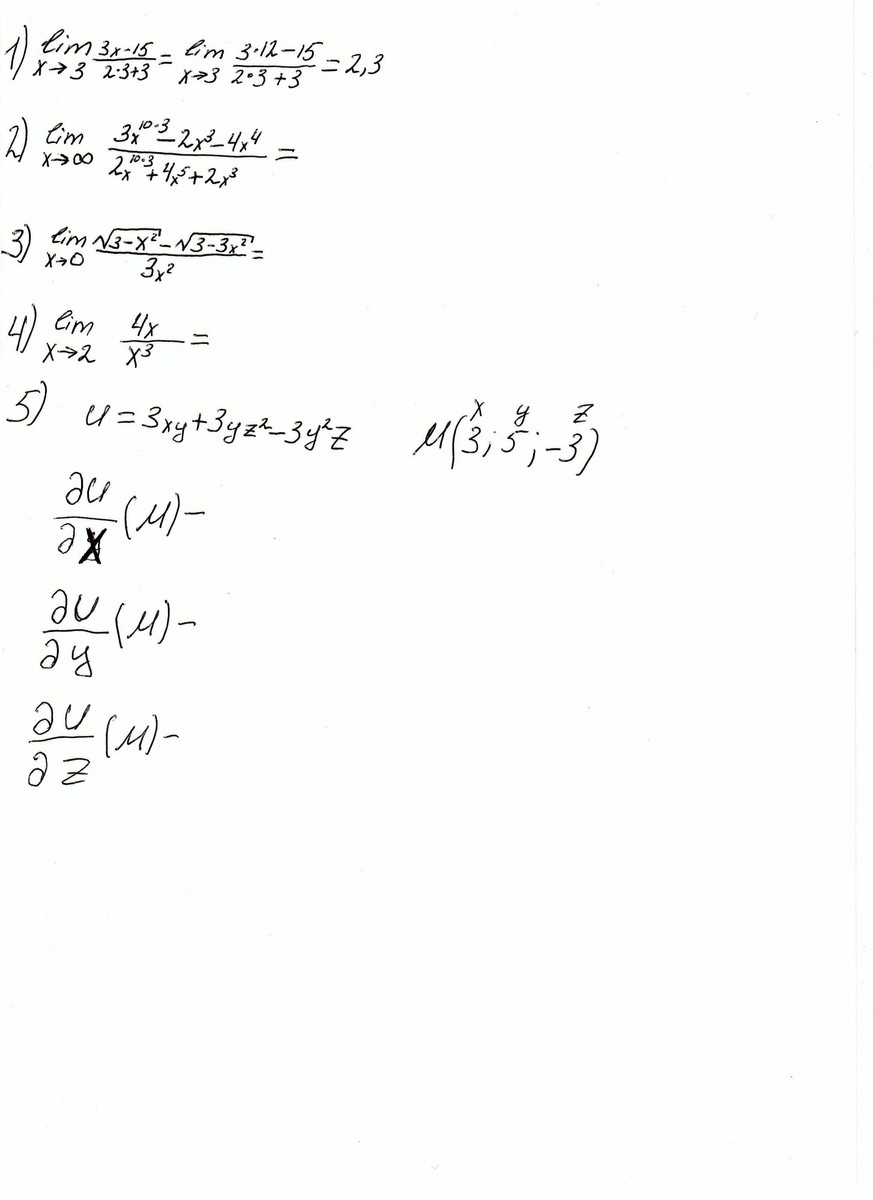 1) lim x→3 3x-15 / 2·3+3 = lim x→3 3·12-15 / 2·3+3 = 2,3
2) lim x→∞ 3x^10·3 - 2x³ - 4x⁴ / 2x^10·3 + 4x⁵ + 2x³ =
3) lim x→0 √3-x² - √3-3x² / 3x² =
4) lim x→2 4x / x³ =
5) u = 3xy + 3yz² - 3y²z M(3; 5; -3) x y z
∂u/∂x (M) -
∂u/∂y (M) -
∂u/∂z (M) -